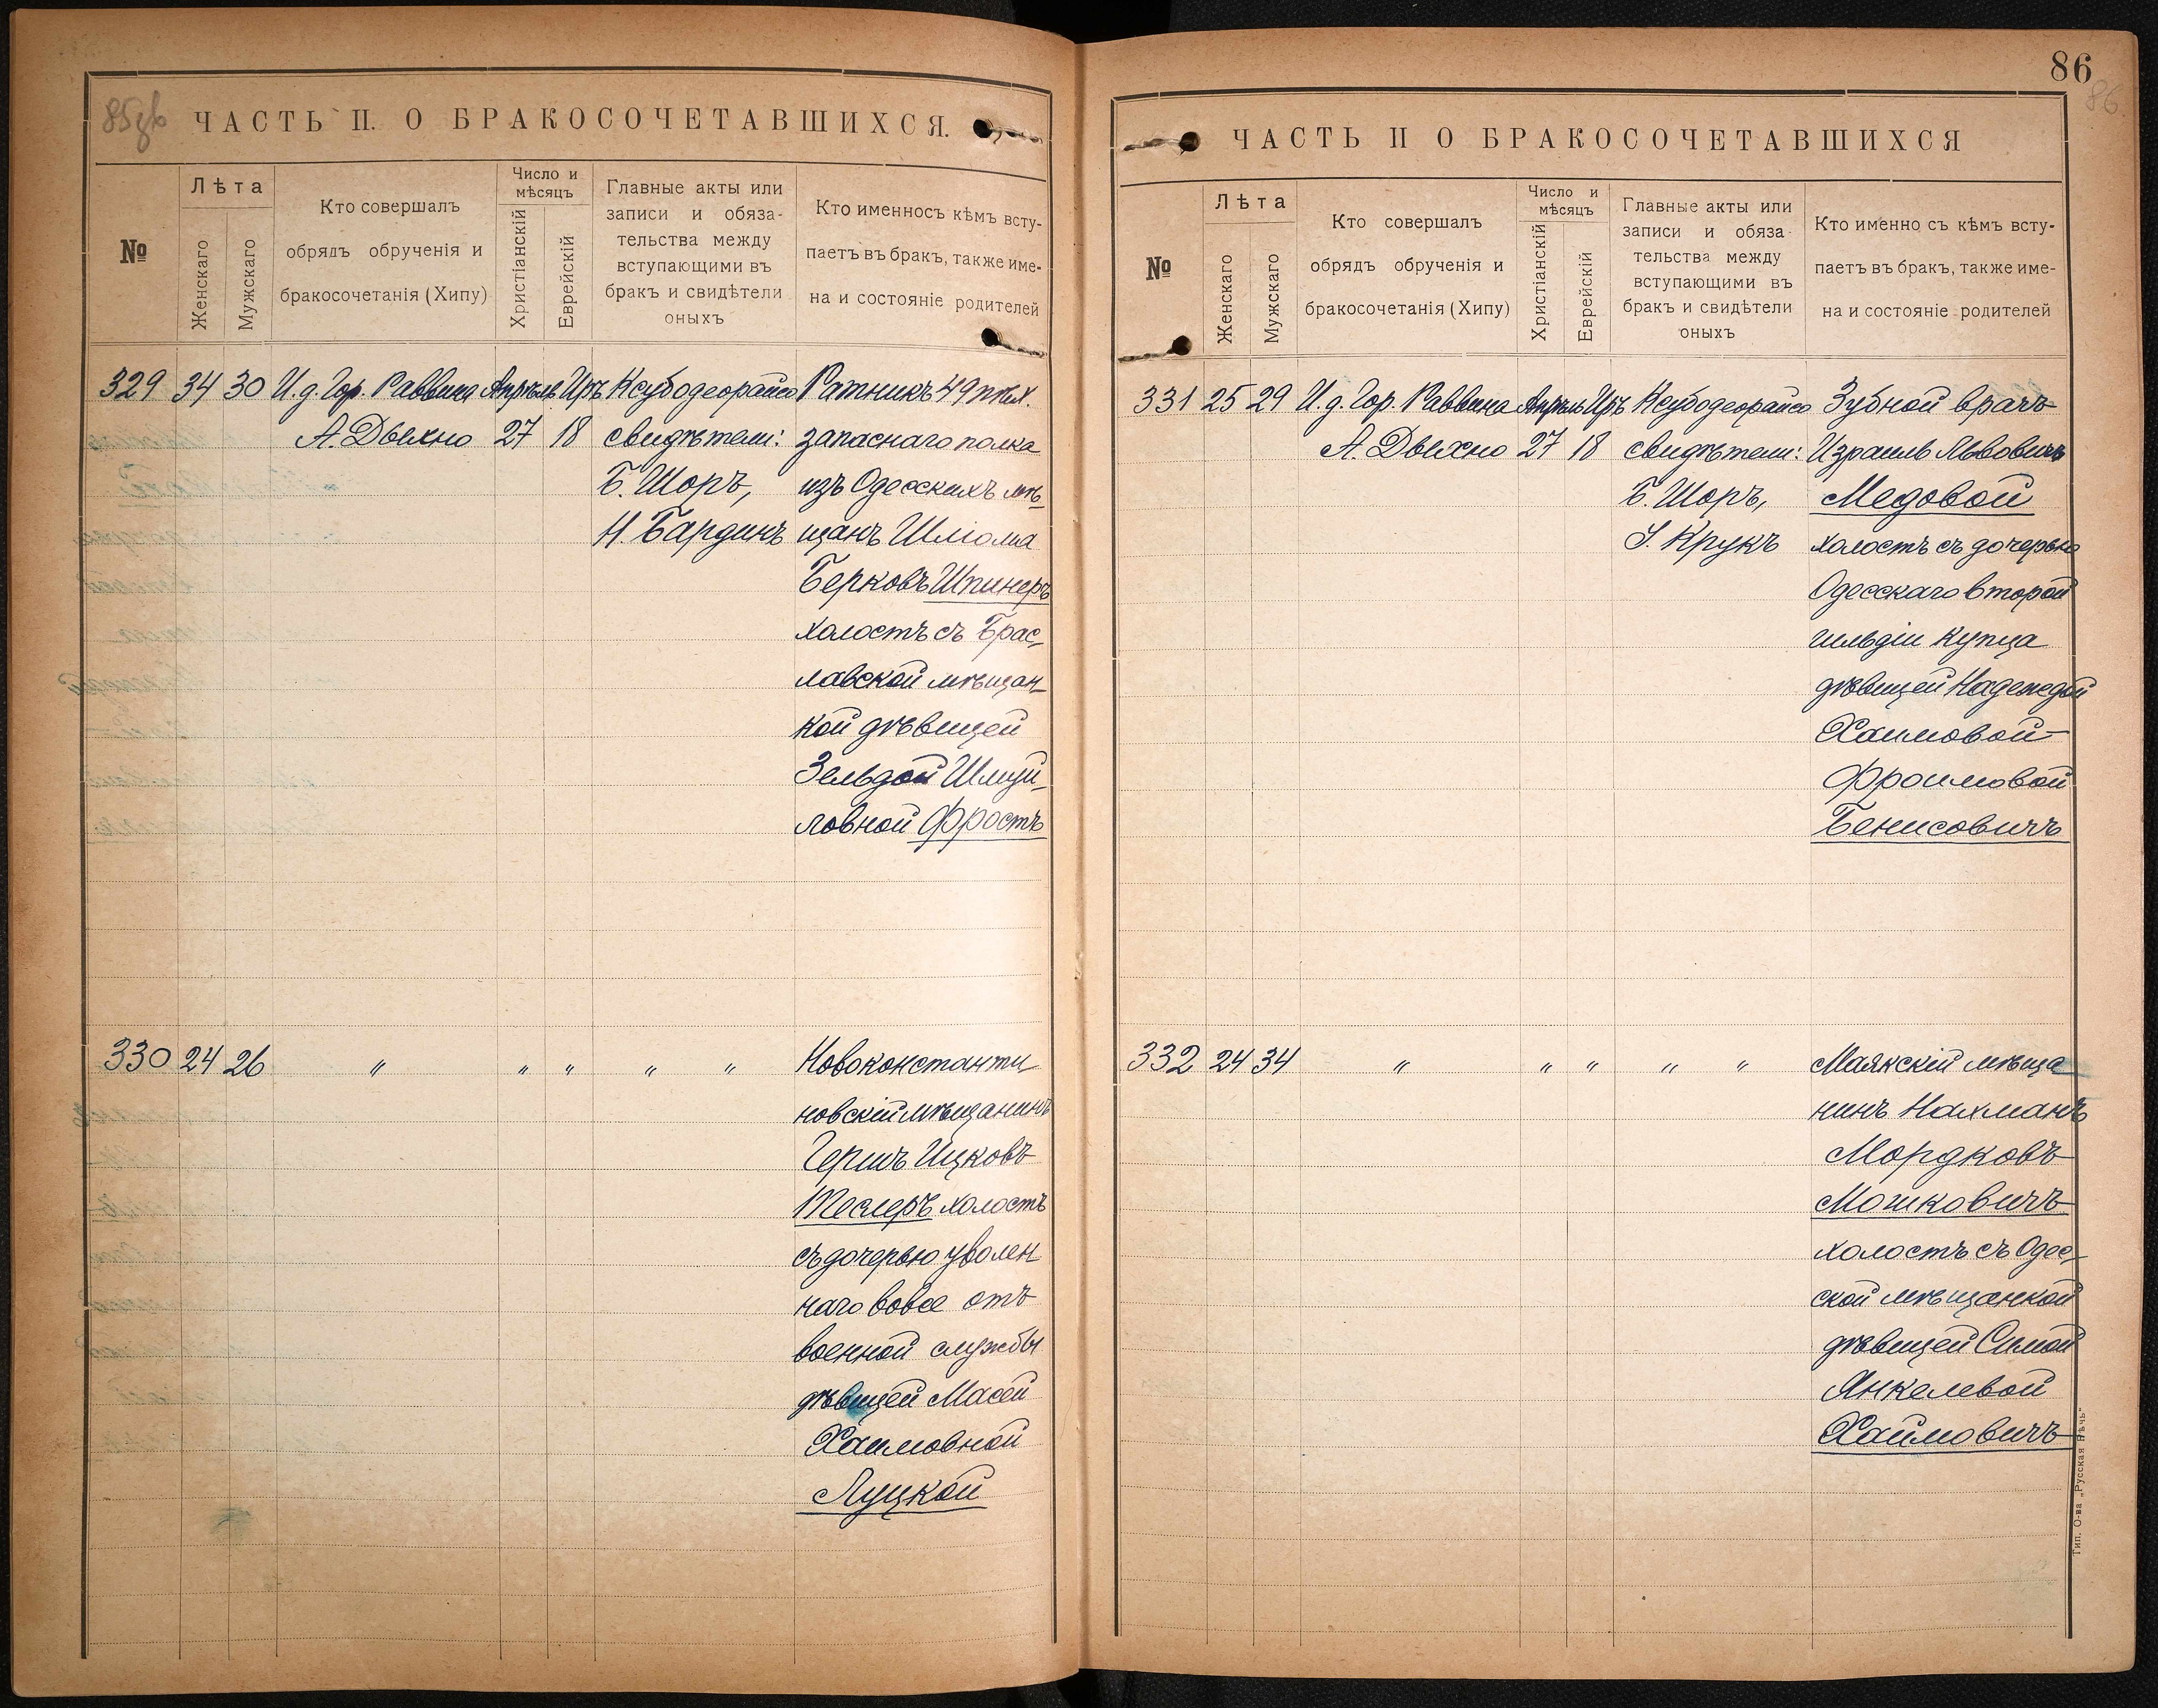 85 об
ЧАСТЬ II. О БРАКОСОЧЕТАВШИХСЯ.
№
Лѣта
Женскаго
Мужскаго
Кто совершалъ
обрядъ обрученія и
бракосочетанія (Хипу)
Число и
мѣсяцъ
Христіанскій
Еврейскій
Главные акты или
записи и обяза-
тельства между
вступающими въ
бракъ и свидѣтели
оныхъ
Кто именносъ кѣмъ всту-
паетъ въ бракъ, также име-
на и состояніе родителей
329 34 30 И.д. Гор. Раввина Апрѣль Иръ Ксубодеорайсо Ратникъ 49 пѣх.
А. Дыхно 27 18 свидѣтели: запаснаго полка
Б. Шоръ, изъ Одесскихъ мѣ-
Н. Бардинъ щанъ Шліома
Берковъ Шпинеръ
холостъ съ Брас-
лавской мѣщан-
кой дѣвицей
Зельдой Шмуй-
ловной Фростъ
330 24 26 " " " " " Новоконстанти-
новскій мѣщанинъ
Гершъ Ицковъ
Теслеръ холостъ
съ дочерью уволен
наго вовсе отъ
военной службы
дѣвицей Масей
Хаимовной
Луцкой
86
86
ЧАСТЬ II О БРАКОСОЧЕТАВШИХСЯ
№
Лѣта
Женскаго
Мужскаго
Кто совершалъ
обрядъ обрученія и
бракосочетанія (Хипу)
Число и
мѣсяцъ
Христіанскій
Еврейскій
Главные акты или
записи и обяза-
тельства между
вступающими въ
бракъ и свидѣтели
оныхъ
Кто именно съ кѣмъ всту-
паетъ въ бракъ, также име-
на и состояніе родителей
331 25 29 И.д. Гор. Раввина Апрѣль Иръ Ксубодеорайсо Зубной врачъ
А. Дыхно 27 18 свидѣтели: Израиль Львовичъ
Б. Шоръ, Медовой
І. Крукъ холостъ съ дочерью
Одесскаго второй
гильдіи купца
дѣвицей Надеждой
Хаимовой-
Фроимовой
Бенисовичъ
332 24 34 " " " " " Маякскій мѣща-
нинъ Нахманъ
Мордковъ
Мошковичъ
холостъ съ Одес-
ской мѣщанкой
дѣвицей Симой
Янкелевой
Хаймовичъ
Тип. О-ва „Русская Рѣчь"